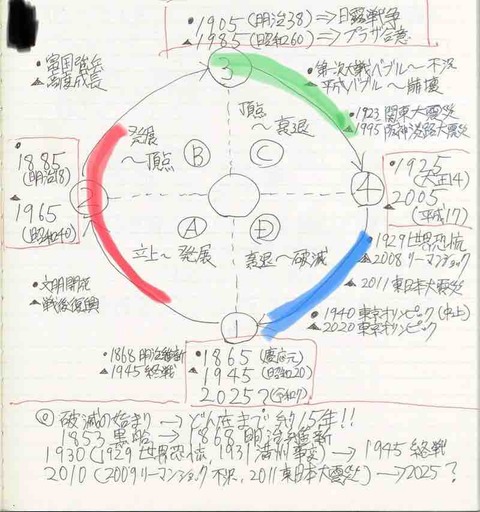 • 1905 (明治38) ⇒ 日露戦争
▲ 1985 (昭和60) ⇒ プラザ合意
• 富国強兵
▲ 高度成長
③
• 第一次大戦バブル〜不況
▲ 平成バブル〜崩壊
頂点
〜衰退
• 1923 関東大震災
▲ 1995 阪神淡路大震災
発展
〜頂点
Ⓑ
Ⓒ
• 1885
(明治18)
▲ 1965
(昭和40)
②
④
• 1925
(大正14)
▲ 2005
(平成17)
Ⓐ
Ⓓ
立上〜発展
衰退〜破滅
• 1929 世界恐慌
▲ 2008 リーマンショック
▲ 2011 東日本大震災
• 文明開化
▲ 戦後復興
• 1940 東京オリンピック (中止)
▲ 2020 東京オリンピック
①
• 1868 明治維新
▲ 1945 終戦
• 1865 (慶応元)
▲ 1945 (昭和20)
2025? (令和7)
破滅の始まり → どん底まで約15年!!
1853 黒船 → 1868 明治維新
1930 (1929 世界恐慌, 1931 満州事変) → 1945 終戦
2010 (2009 リーマンショック不況, 2011 東日本大震災) → 2025?